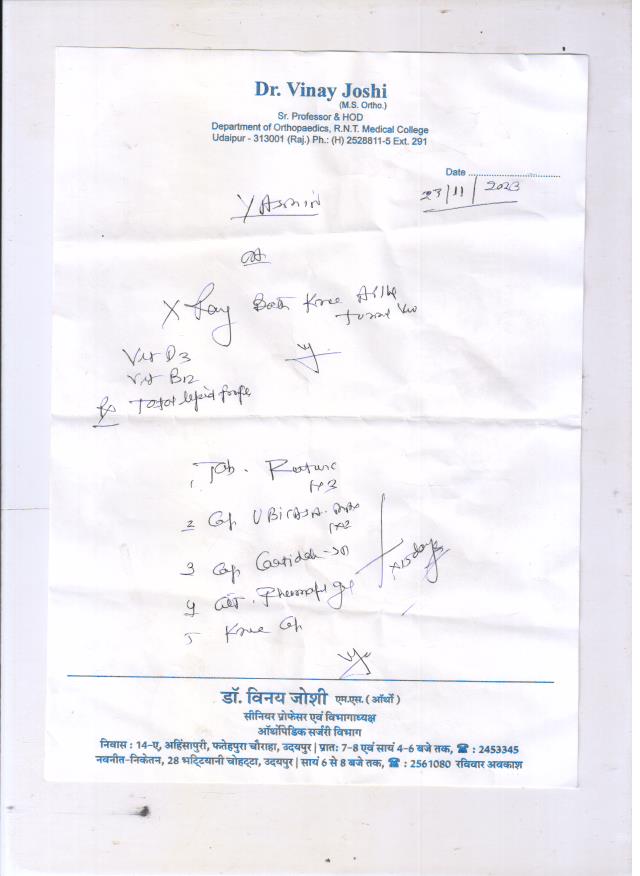 Dr. Vinay Joshi
(M.S. Ortho.)
Sr. Professor & HOD
Department of Orthopaedics, R.N.T. Medical College
Udaipur - 313001 (Raj.) Ph.: (H) 2528811-5 Ext. 291
Date
23/11/2023
YASMIN
OA
X Ray Both Knee
Vit D3
Vit B12
Rx Total lipid
1. Tab.
1x3
2 Cap
1x2
3 Cap
x 15 days
4 gel
5 Knee Cap
डॉ. विनय जोशी एम.एस. (ऑर्थो)
सीनियर प्रोफेसर एवं विभागाध्यक्ष
ऑर्थोपिडिक सर्जरी विभाग
निवास : 14-ए, अहिंसापुरी, फतेहपुरा चौराहा, उदयपुर | प्रातः 7-8 एवं सायं 4-6 बजे तक, ☎ : 2453345
नवनीत-निकेतन, 28 भट्टियानी चोहट्टा, उदयपुर | सायं 6 से 8 बजे तक, ☎ : 2561080 रविवार अवकाश